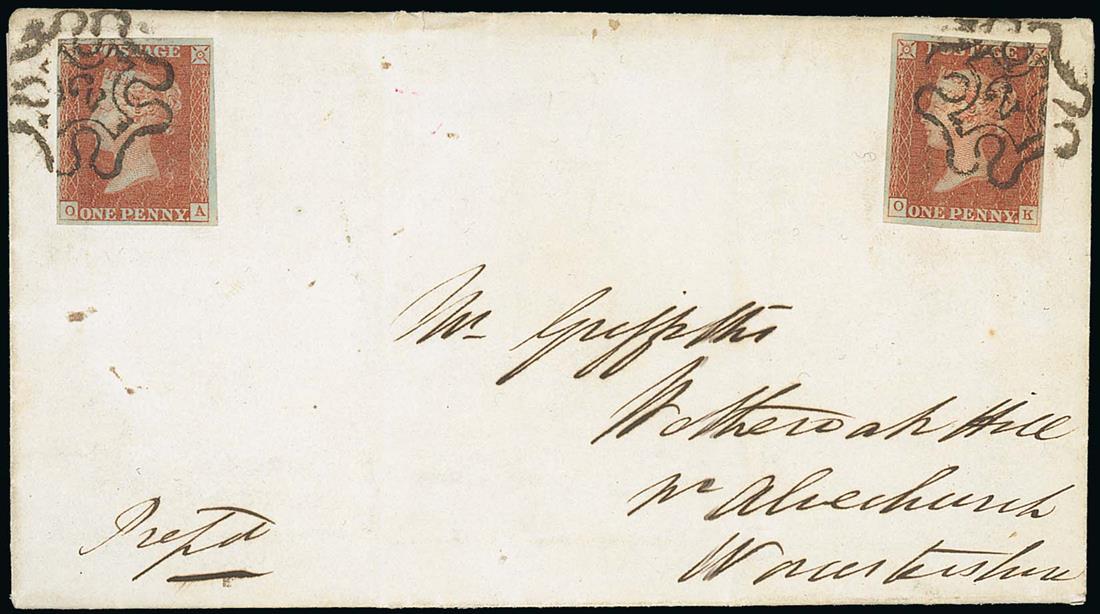 POSTAGE
O ONE PENNY A
2
POSTAGE
O ONE PENNY K
2
Mr Griffiths
Wetheroak Hill
nr Alvechurch
Worcestershire
Prepd